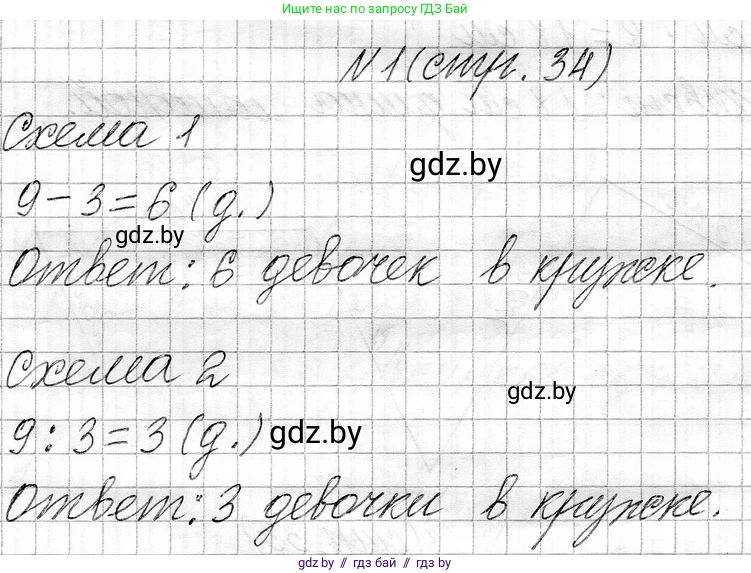 Ищите нас поиском по запросу ГДЗ Бай
N1 (стр. 34)
Схема 1
gdz.by
9 - 3 = 6 (д.)
gdz.by
Ответ: 6 девочек в кружке.
Схема 2
gdz.by
9 : 3 = 3 (д.) gdz.by
Ответ: 3 девочки в кружке.
gdz.by // гдз бай // gdz by